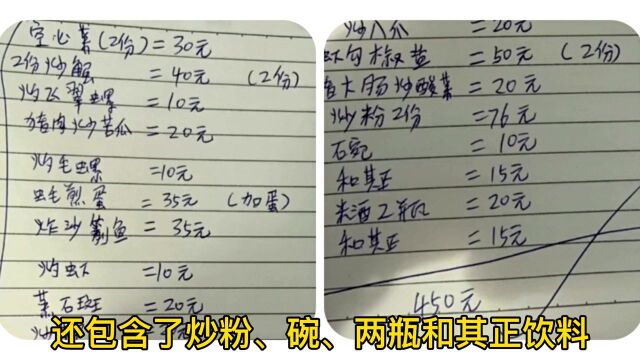 空心菜(2份)=30元
2份炒蟹 =40元 (2份)
炒翡翠螺 =10元
猪肉炒苦瓜 =20元
炒毛螺 =10元
蚝煎蛋 =35元 (加蛋)
炸沙剶鱼 =35元
炒虾 =10元
蒸石斑 =20元
炒八爪 =20元
虾勾椒盐 =50元 (2份)
猪大肠炒酸菜 =20元
炒粉2份 =76元
石宛 =10元
和其正 =15元
米酒2瓶 =20元
和其正 =15元
450元
还包含了炒粉、碗、两瓶和其正饮料